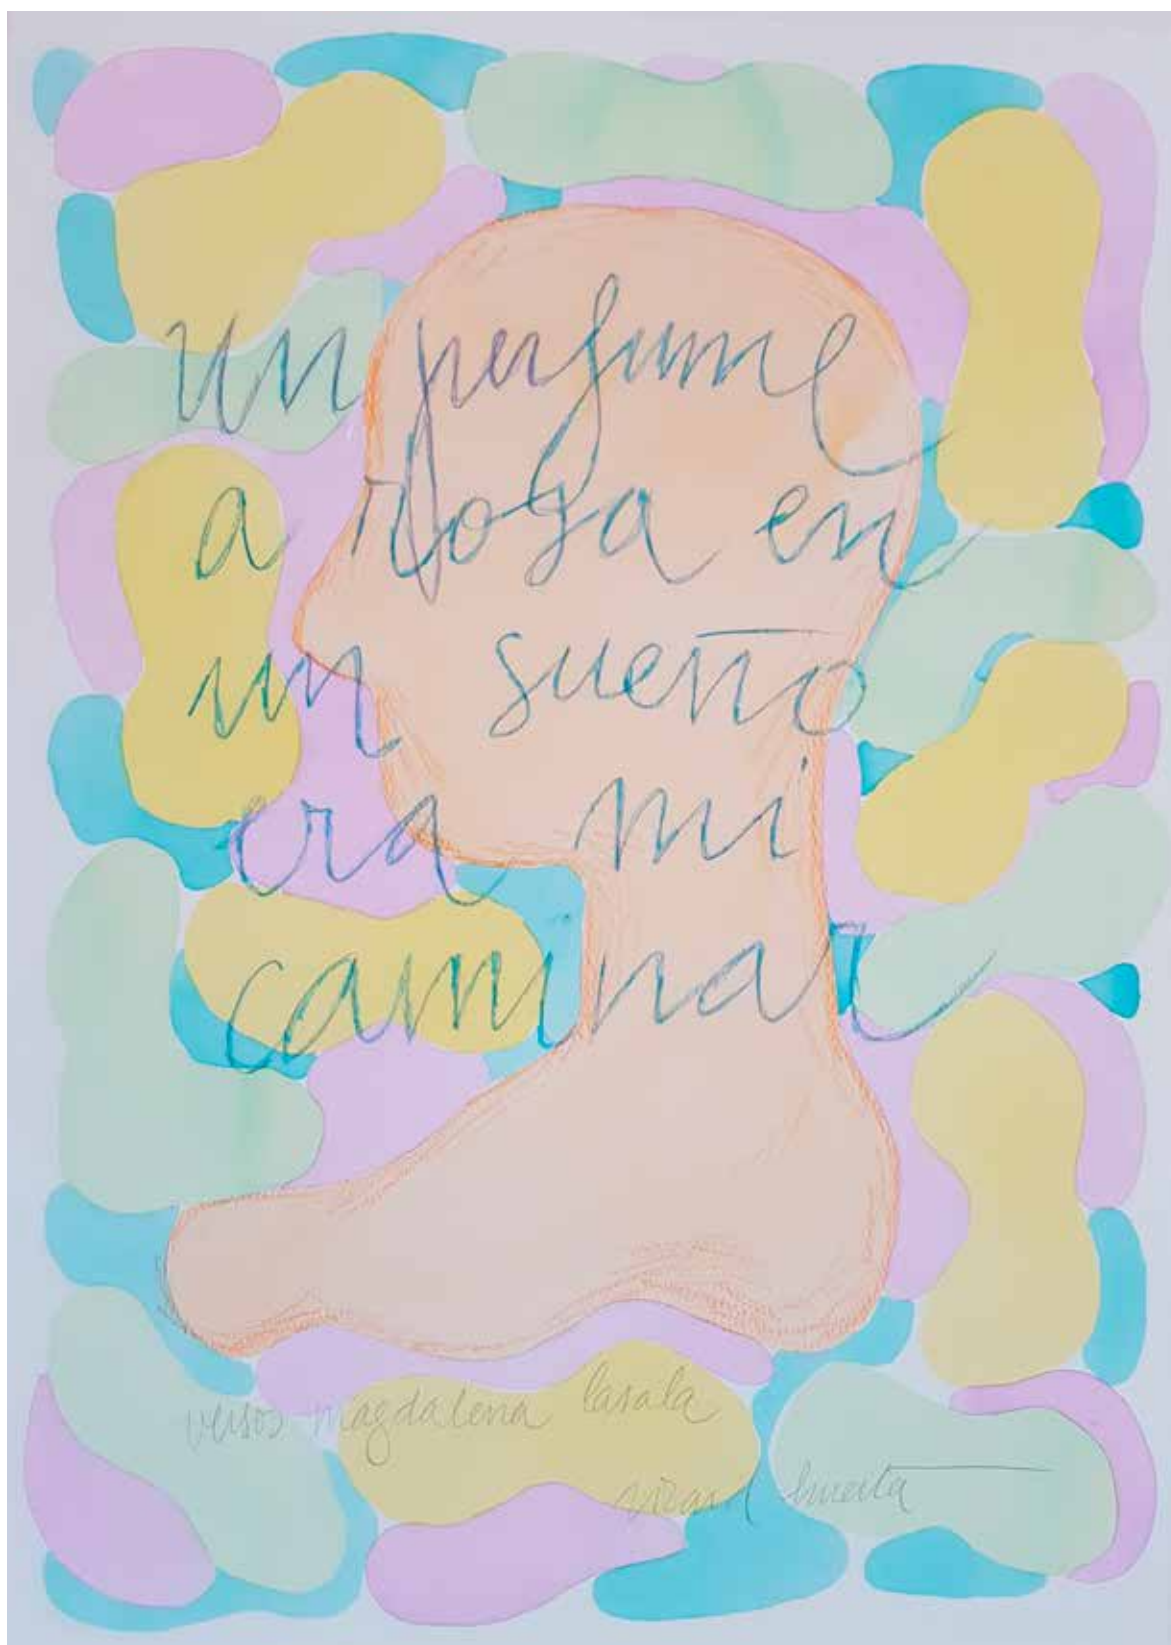 Un perfume
a rosa en
un sueño
era mi
caminar
versos magdalena lasala
ricard huerta